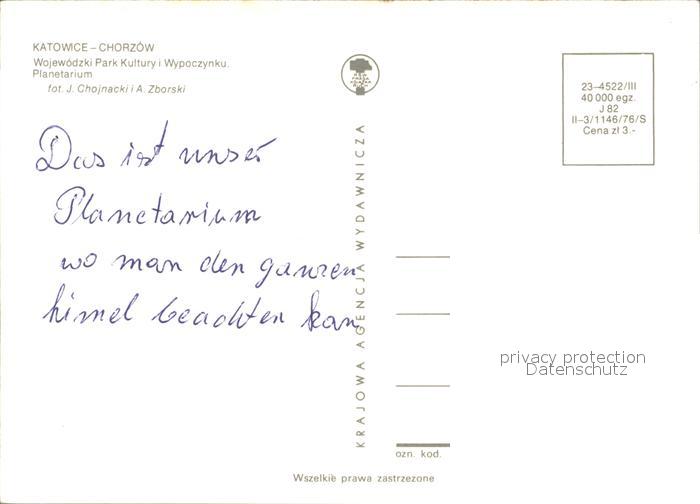 KATOWICE – CHORZÓW
Wojewódzki Park Kultury i Wypoczynku.
Planetarium
fot. J. Chojnacki i A. Zborski
Das ist unser
Planetarium
wo man den ganzen
himel beachten kan
KRAJOWA AGENCJA WYDAWNICZA
23–4522/III
40 000 egz.
J 82
II–3/1146/76/S
Cena zł 3.-
privacy protection
Datenschutz
ozn. kod.
Wszelkie prawa zastrzeżone